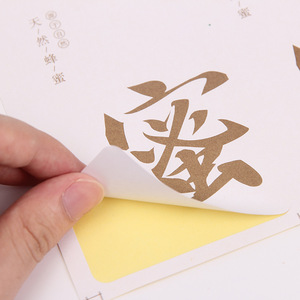 天/然/蜂/蜜
蜜